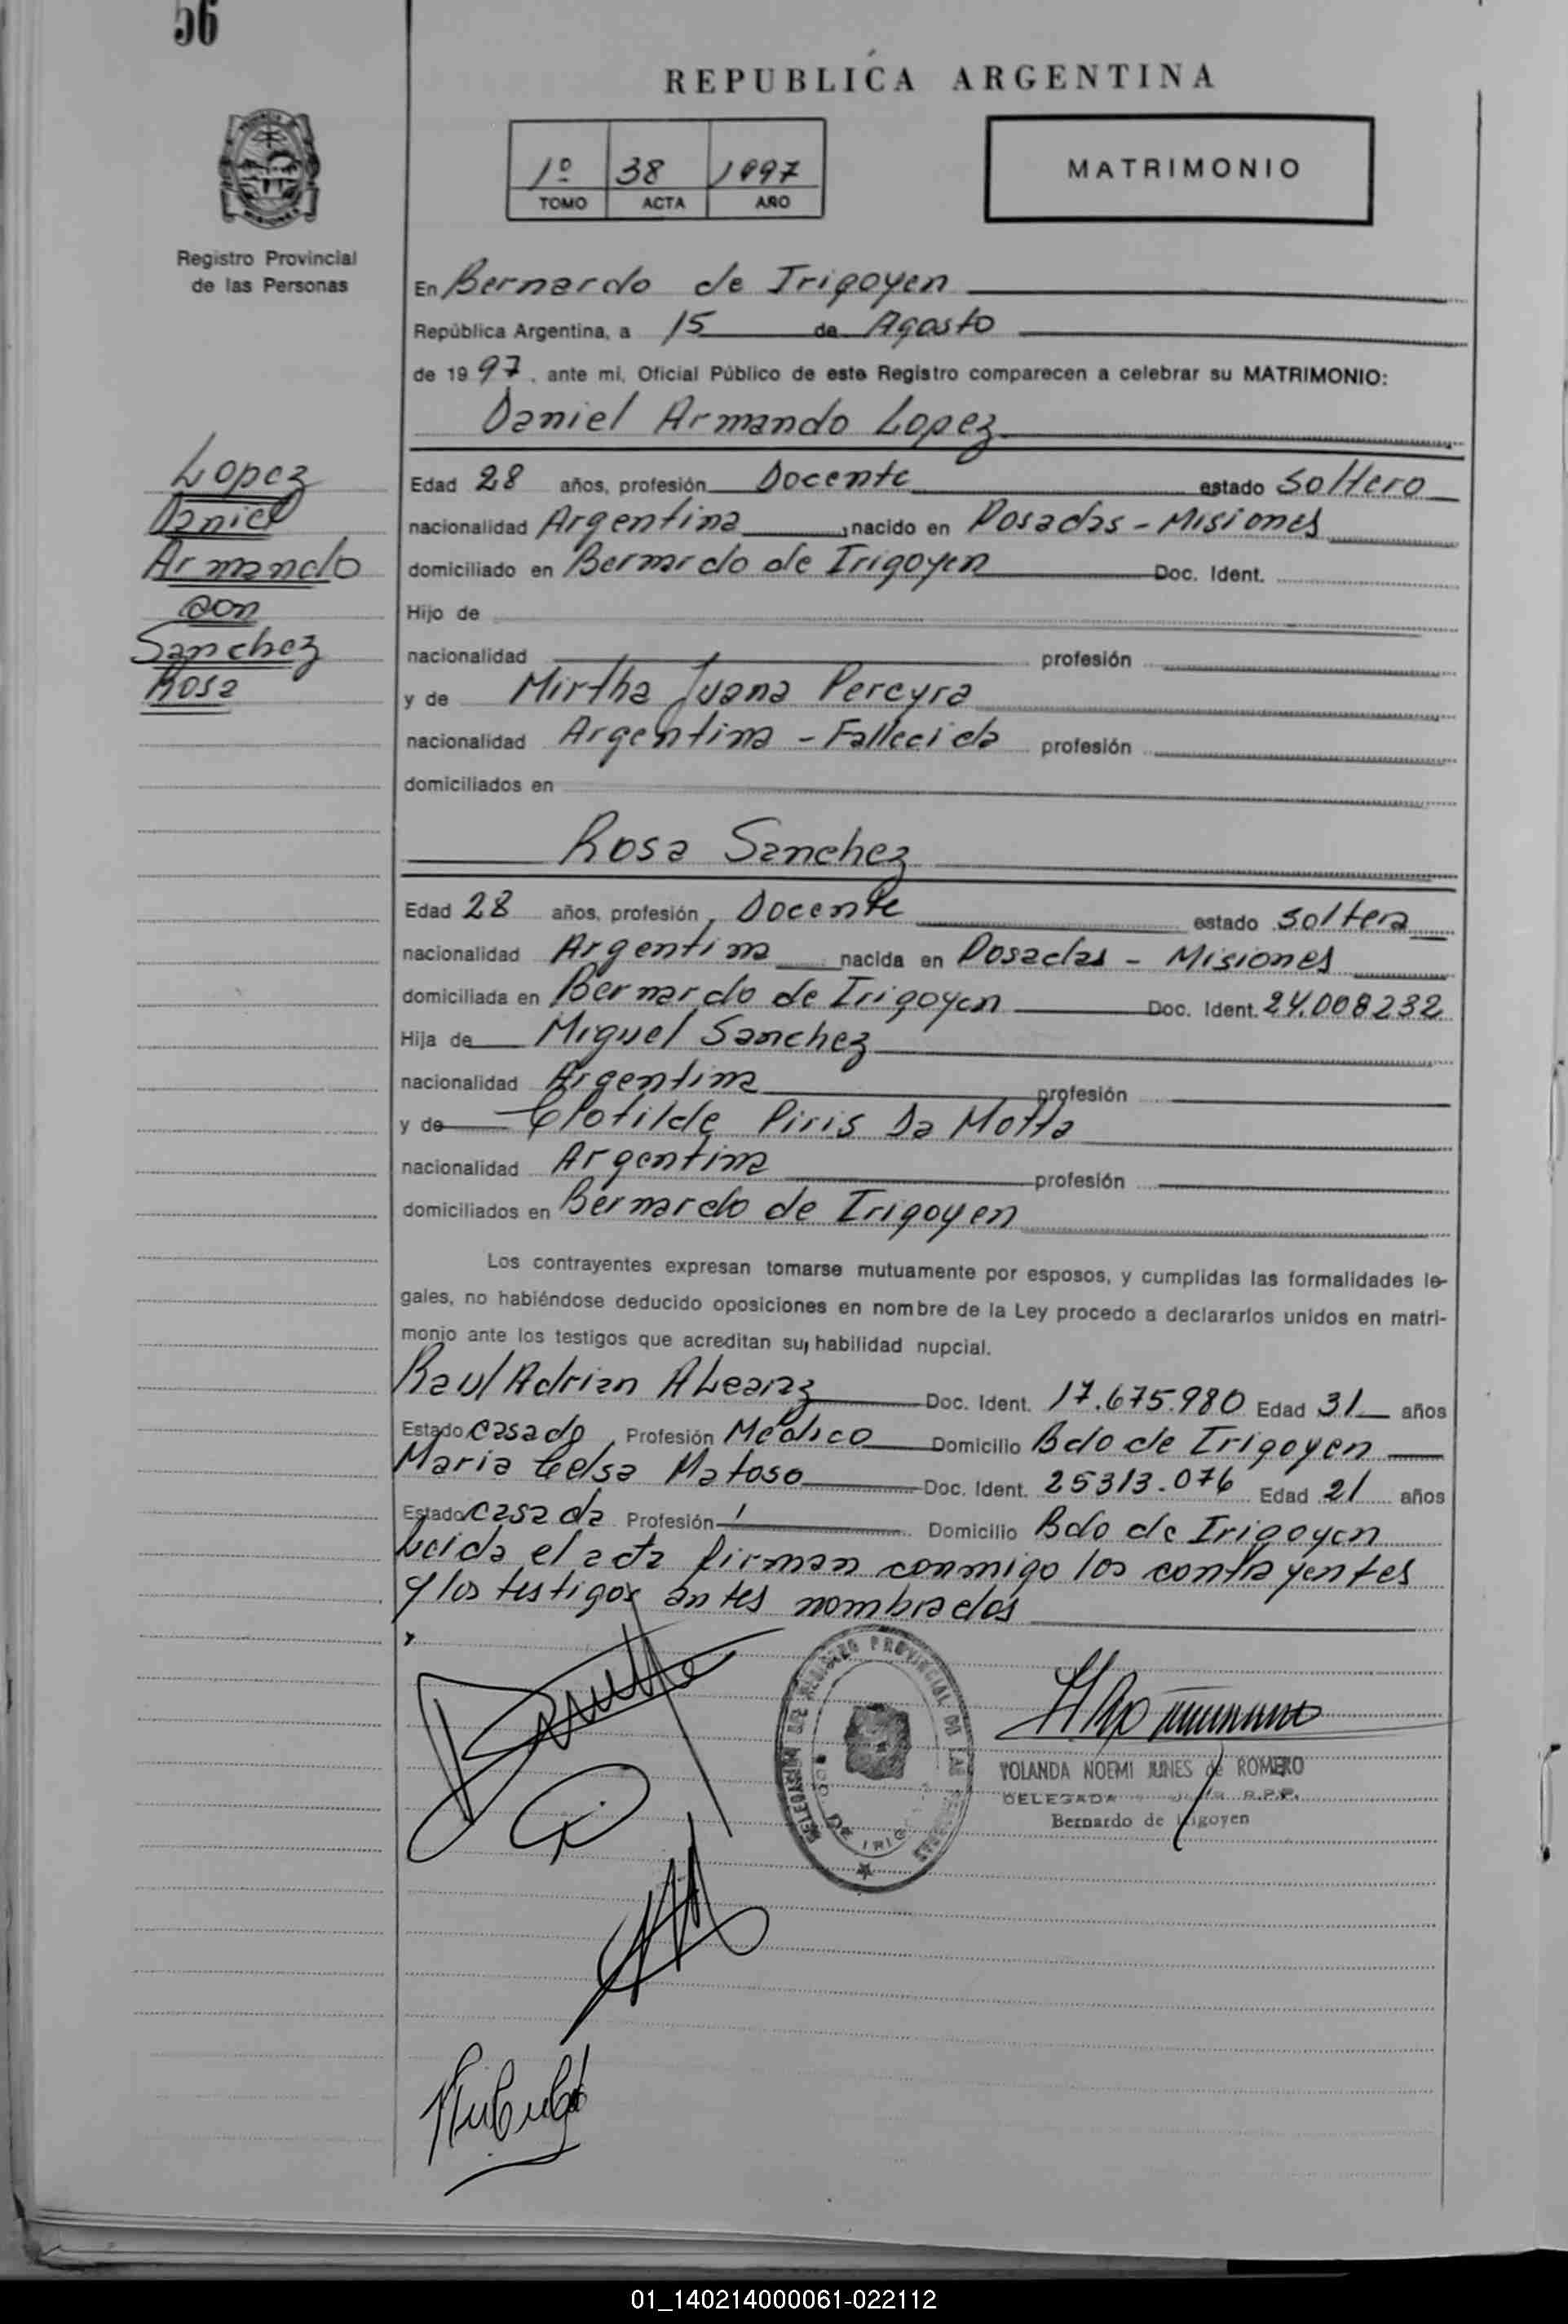 56
REPUBLICA ARGENTINA
1º 38 1997
TOMO ACTA AÑO
MATRIMONIO
Registro Provincial
de las Personas
En Bernardo de Irigoyen
República Argentina, a 15 de Agosto
de 1997, ante mi, Oficial Público de este Registro comparecen a celebrar su MATRIMONIO:
Daniel Armando Lopez
Lopez
Daniel
Armando
con
Sanchez
Rosa
Edad 28 años, profesión Docente estado Soltero
nacionalidad Argentina, nacido en Posadas - Misiones
domiciliado en Bernardo de Irigoyen Doc. Ident.
Hijo de
nacionalidad profesión
y de Mirtha Juana Pereyra
nacionalidad Argentina - Fallecida profesión
domiciliados en
Rosa Sanchez
Edad 28 años, profesión, Docente estado Soltera
nacionalidad Argentina nacida en Posadas - Misiones
domiciliada en Bernardo de Irigoyen Doc. Ident. 24.008232
Hija de Miguel Sanchez
nacionalidad Argentina profesión
y de Clotilde Piris Da Motta
nacionalidad Argentina profesión
domiciliados en Bernardo de Irigoyen
Los contrayentes expresan tomarse mutuamente por esposos, y cumplidas las formalidades le-
gales, no habiéndose deducido oposiciones en nombre de la Ley procedo a declararlos unidos en matri-
monio ante los testigos que acreditan su habilidad nupcial.
Raul Adrian Doc. Ident. 17.675.980 Edad 31 años
Estado Casado Profesión Médico Domicilio Bdo de Irigoyen
Maria Celsa Matoso Doc. Ident. 25313.076 Edad 21 años
Estado Casada Profesión Domicilio Bdo de Irigoyen
Leida el acta firman conmigo los contrayentes
y los testigos antes nombrados
REGISTRO PROVINCIAL DE LAS
YOLANDA NOEMI JUNES de ROMERO
DELEGADA R.P.P.
Bernardo de Irigoyen
01_140214000061-022112